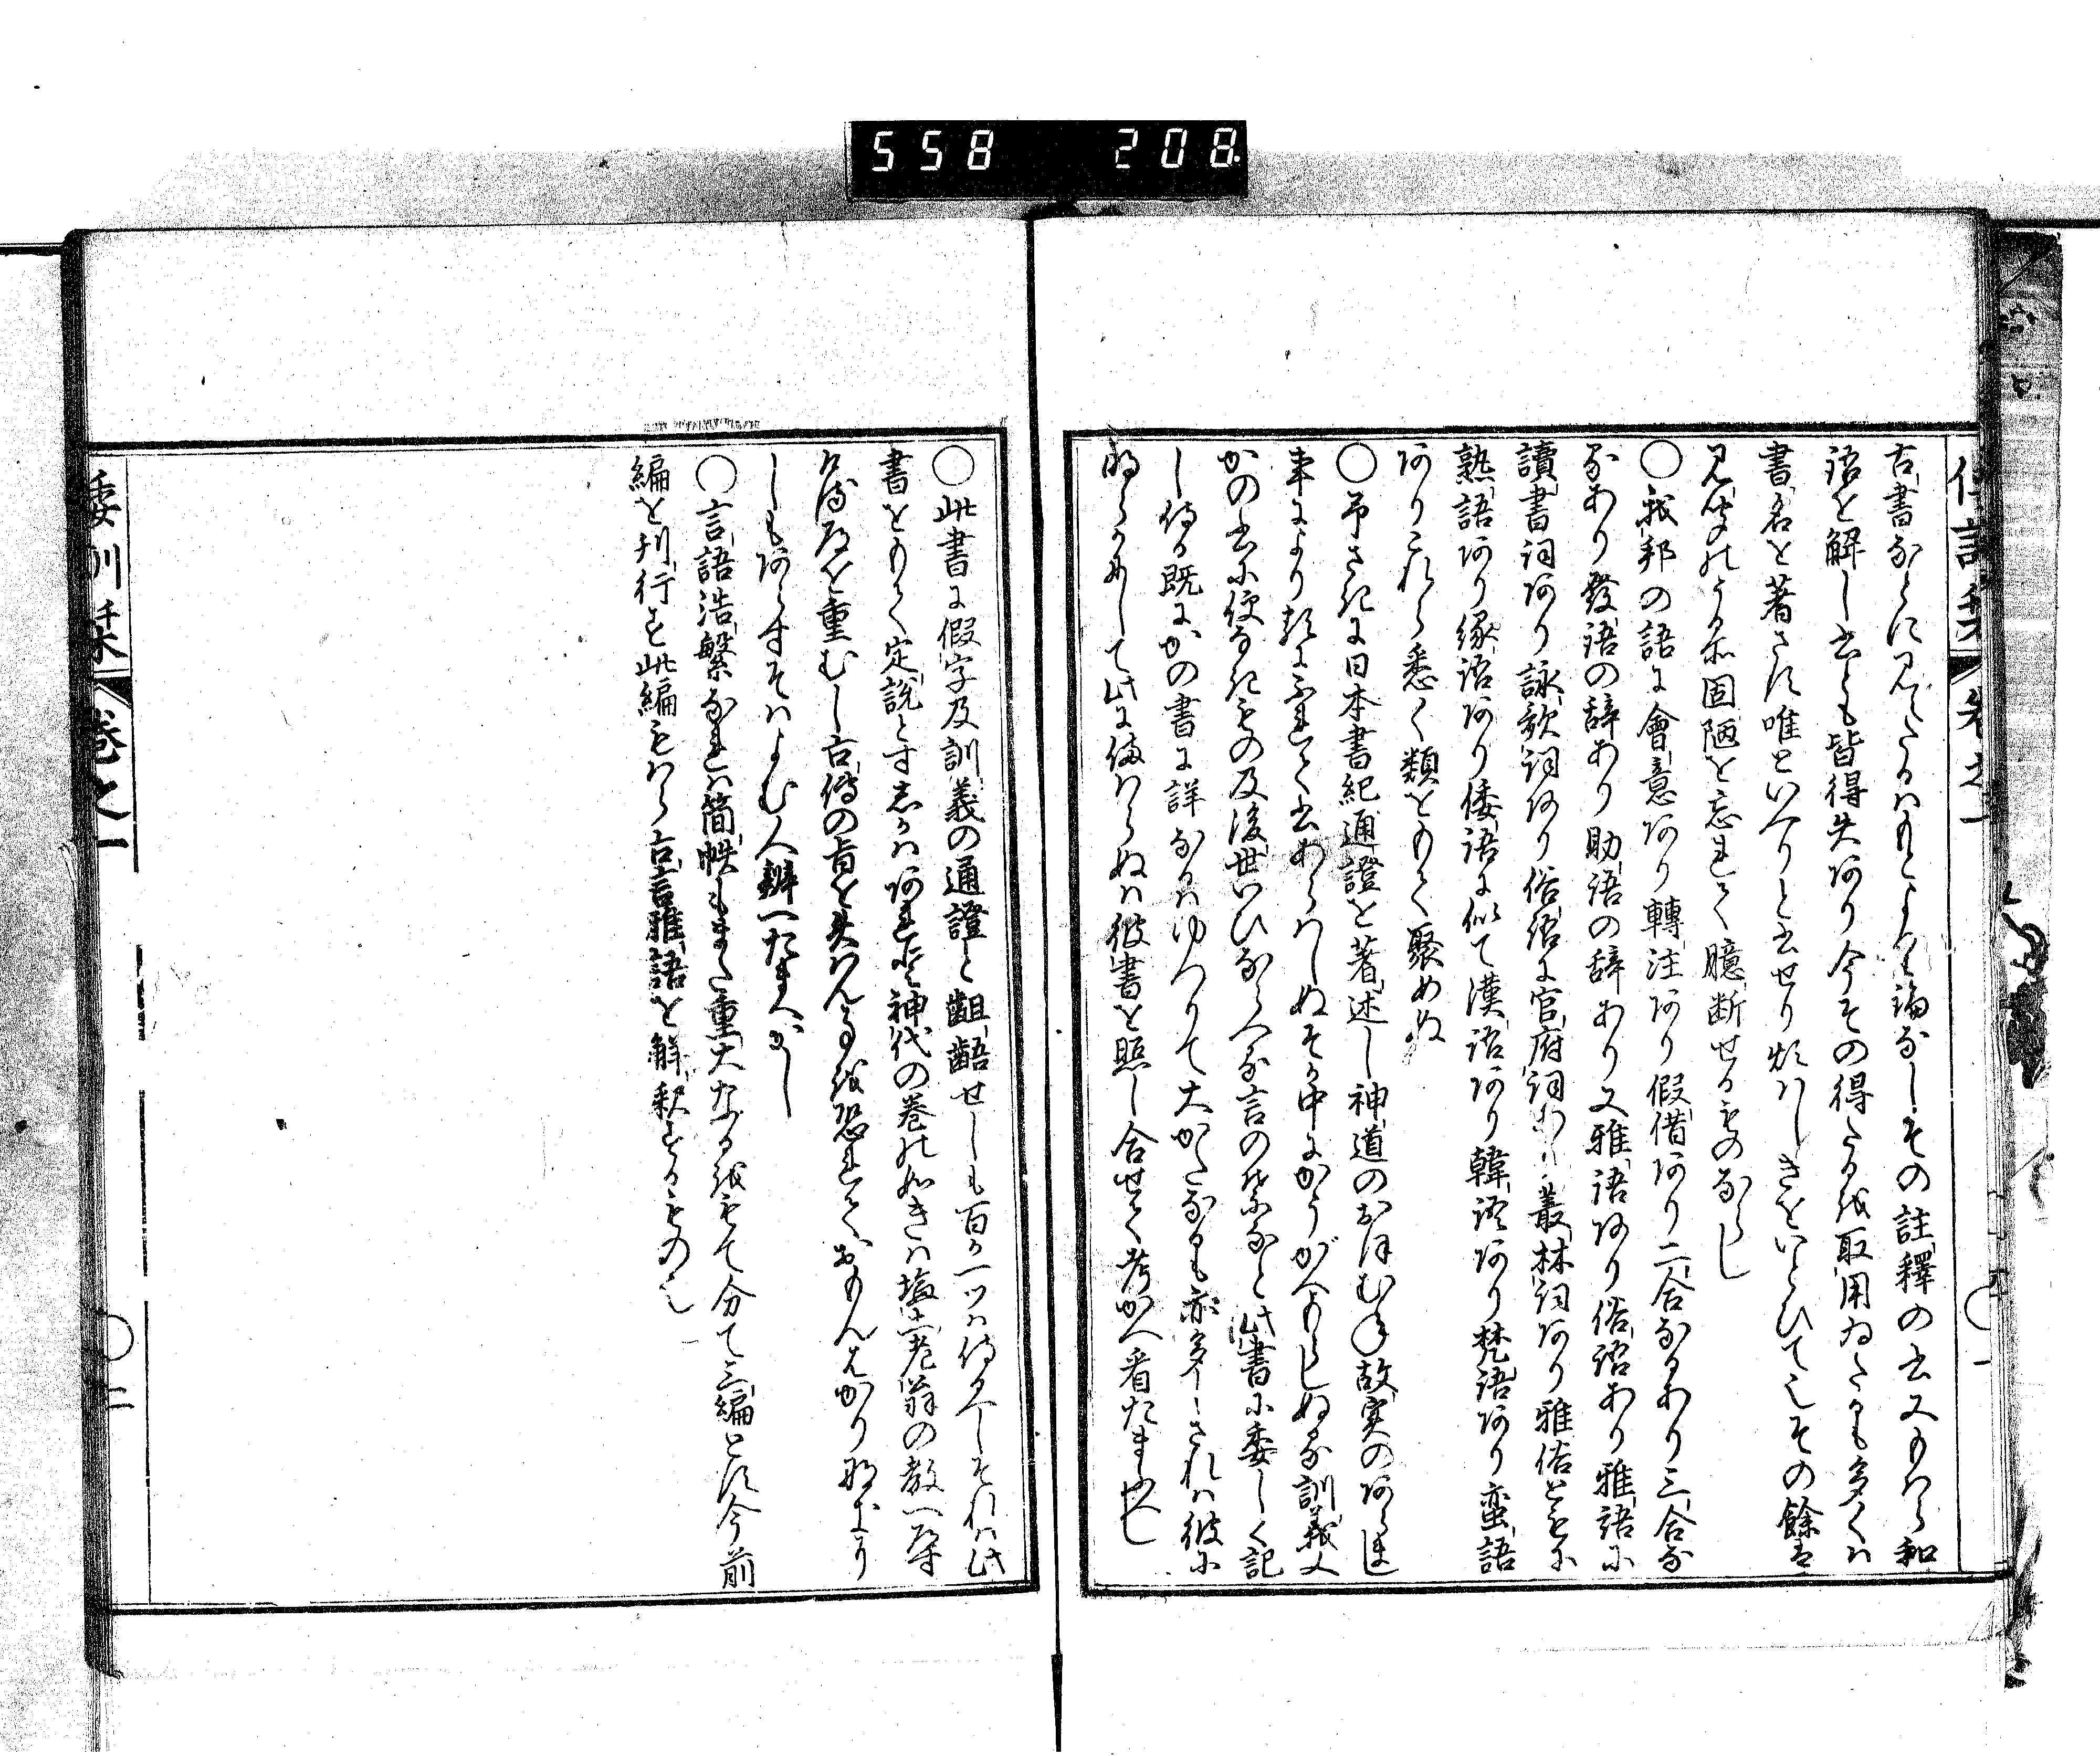 558 208
倭訓栞 卷之一 一
古書などに見えたるはもとより論なしその註釋の書又もはら和
語を解し書とも皆得失あり今その得たるを取用ゐたるも多くは
書名を著さす唯といへりと書せり煩はしきをいとひて也その餘は
見聞のよる所固陋を忘れて臆断せるものならし
○我邦の語に會意あり轉注あり假借あり二合なるあり三合な
るあり發語の辞あり助語の辞あり又雅語あり俗語あり雅語に
讀書詞あり詠歌詞あり俗語に官府詞あり叢林詞あり雅俗ともに
熟語あり縁語あり倭語に似て漢語あり韓語あり梵語あり蛮語
ありこれら悉く類をもて聚めぬ
○予さきに日本書紀通證を著述し神道のおほむね故実のあらまし
事により類にふれて書あらはしぬそか中にかうがへもらしぬる訓義又
かの書に便なきもの及後世いひならへる言の葉なと此書に委しく記
し侍る既にかの書に詳なるはゆつりて大かたなるも亦多しされは彼に
明らめして此に備はらぬは彼書を照し合せて考かへ看たまふへし
○此書に假字及訓義の通證と齟齬せしも百か一ツは侍るへしそれは此
書をもて定説とす志かはあれと神代の巻の如きは塩土老翁の教へ尋
ける及を重むし古傳の旨を失はん事を恐れておもんはかり
しもあらすそはよむ人辨へたまへかし
○言語浩繁なれは簡帙もまた重大なるをもて分て三編とす今前
編を刊行す此編もはら古言雅語を解釈するもの也
倭訓栞 卷之一 二